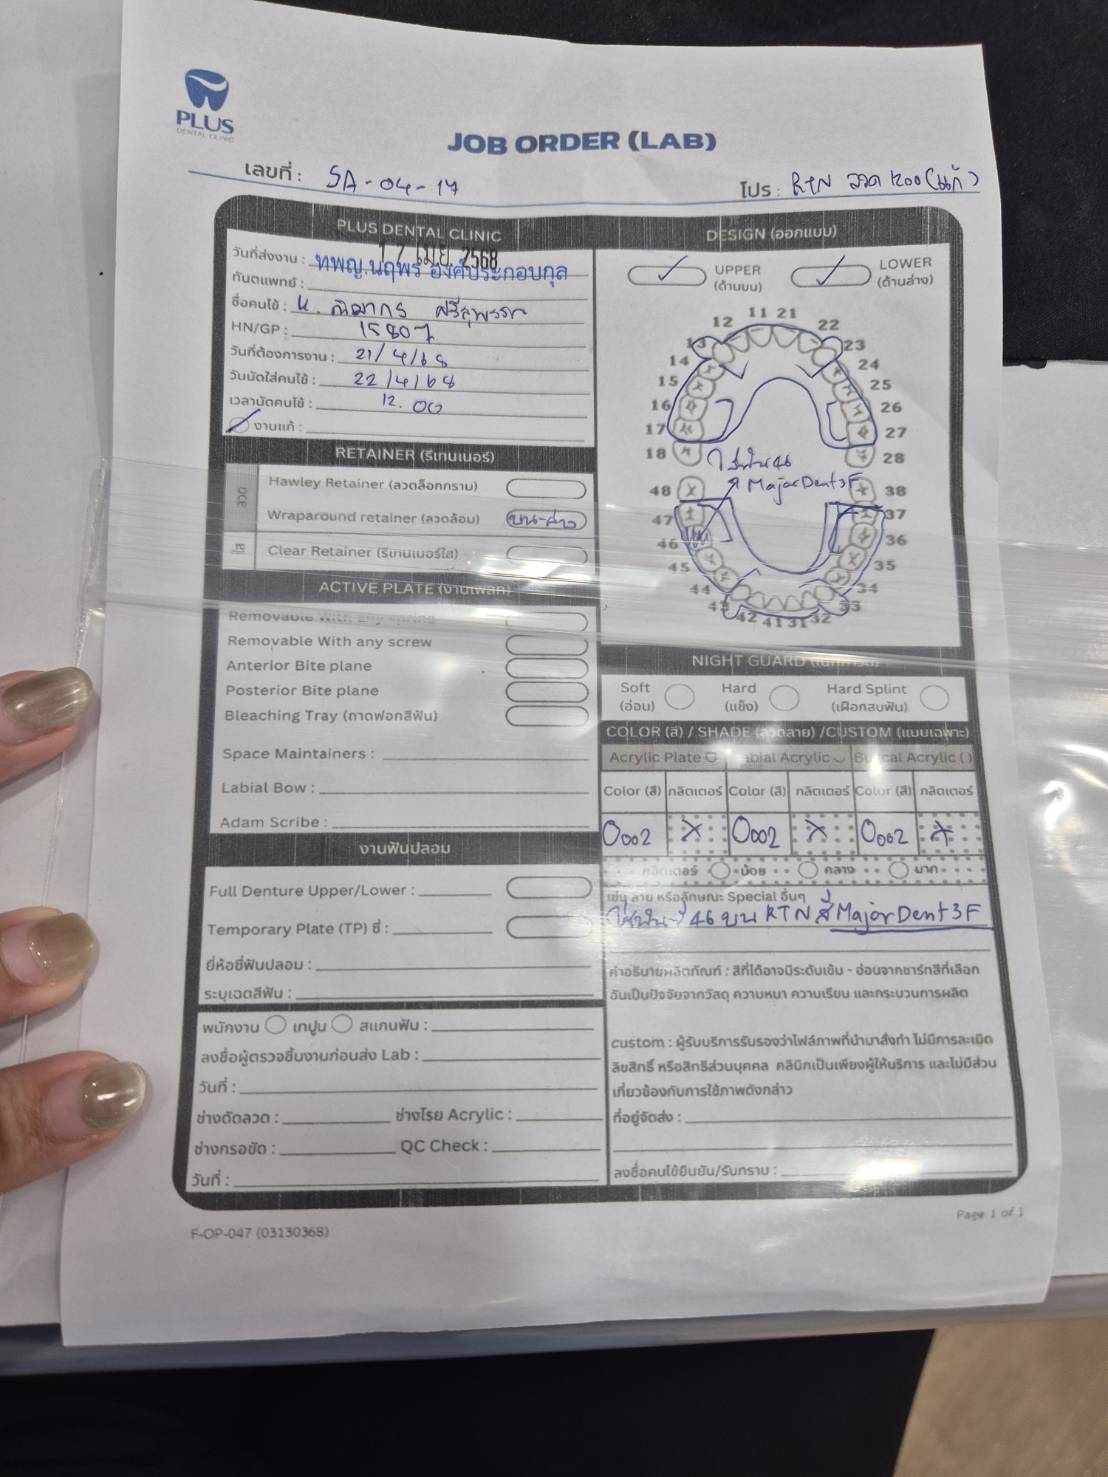 PLUS
DENTAL CLINIC
JOB ORDER (LAB)
เลขที่ : SA-04-17
โปร : RTN ลวด 1200 (แก้)
PLUS DENTAL CLINIC
วันที่ส่งงาน : 17 เม.ย. 2568
ทันตแพทย์ : ทพญ.นฤพร องค์ประกอบกุล
ชื่อคนไข้ :
HN/GP : 15807
วันที่ต้องการงาน : 21/4/68
วันนัดใส่คนไข้ : 22/4/68
เวลานัดคนไข้ : 12.00
งานแก้ :
RETAINER (รีเทนเนอร์)
Hawley Retainer (ลวดล็อกกราม)
Wraparound retainer (ลวดล้อม) บน-ล่าง
Clear Retainer (รีเทนเนอร์ใส)
ACTIVE PLATE (งานเพลท)
Removable With any spring
Removable With any screw
Anterior Bite plane
Posterior Bite plane
Bleaching Tray (ถาดฟอกสีฟัน)
Space Maintainers :
Labial Bow :
Adam Scribe :
งานฟันปลอม
Full Denture Upper/Lower :
Temporary Plate (TP) ซี่ :
ยี่ห้อซี่ฟันปลอม :
ระบุเฉดสีฟัน :
พนักงาน เทปูน สแกนฟัน :
ลงชื่อผู้ตรวจชิ้นงานก่อนส่ง Lab :
วันที่ :
ช่างดัดลวด : ช่างโรย Acrylic :
ช่างกรอขัด : QC Check :
วันที่ :
DESIGN (ออกแบบ)
UPPER
(ด้านบน)
LOWER
(ด้านล่าง)
11 21
12 22
13 23
14 24
15 25
16 26
17 27
18 28
ใส่ฟัน 46
MajorDent 3F
48 38
47 37
46 36
45 35
44 34
43 33
42 41 31 32
NIGHT GUARD
Soft
(อ่อน)
Hard
(แข็ง)
Hard Splint
(เฝือกสบฟัน)
COLOR (สี) / SHADE (ลวดลาย) /CUSTOM (แบบเฉพาะ)
Acrylic Plate Labial Acrylic Buccal Acrylic ()
Color (สี) กลิตเตอร์ Color (สี) กลิตเตอร์ Color (สี) กลิตเตอร์
0002 X 0002 X 0002 X
กลิตเตอร์ น้อย กลาง มาก
เช่น ลาย หรือลักษณะ Special อื่นๆ
ใส่ฟัน 46 บน RTN สี MajorDent 3F
คำอธิบายผลิตภัณฑ์ : สีที่ได้อาจมีระดับเข้ม - อ่อนจากชาร์ทสีที่เลือก
อันเป็นปัจจัยจากวัสดุ ความหนา ความเรียบ และกระบวนการผลิต
custom : ผู้รับบริการรับรองว่าไฟล์ภาพที่นำมาสั่งทำ ไม่มีการละเมิด
ลิขสิทธิ์ หรือสิทธิส่วนบุคคล คลินิกเป็นเพียงผู้ให้บริการ และไม่มีส่วน
เกี่ยวข้องกับการใช้ภาพดังกล่าว
ที่อยู่จัดส่ง :
ลงชื่อคนไข้ยืนยัน/รับทราบ :
F-OP-047 (03130368)
Page 1 of 1